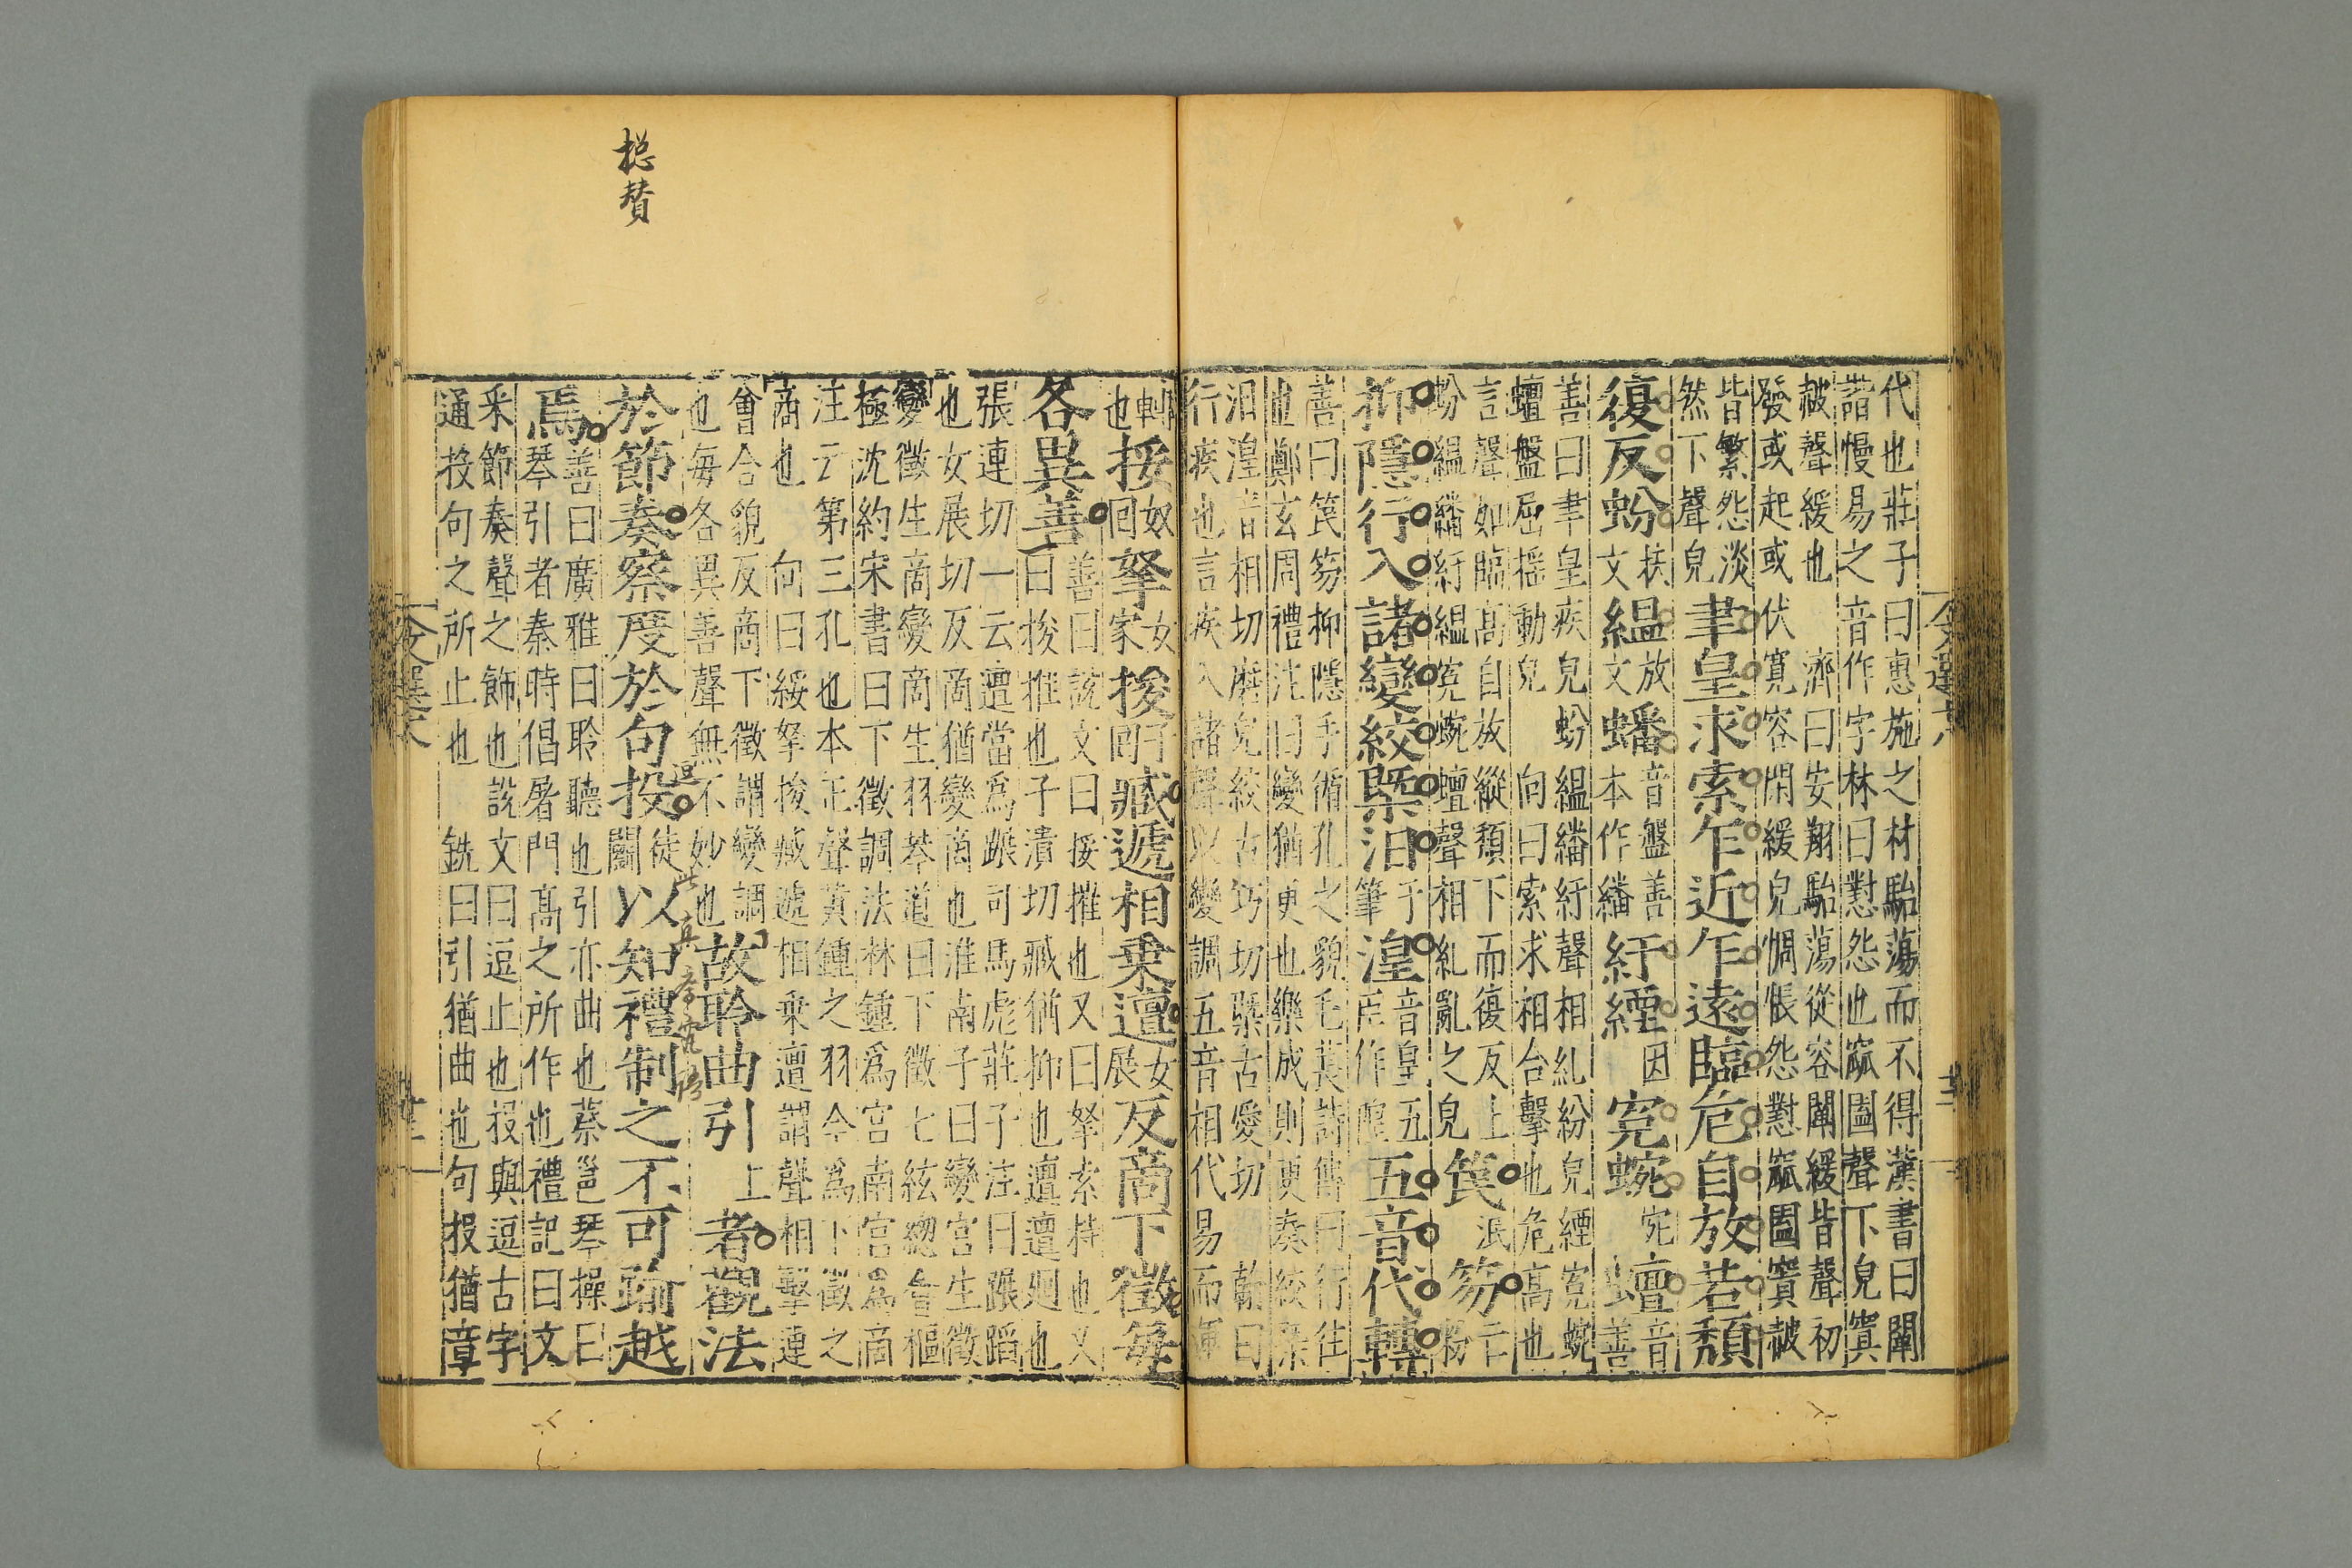 代也莊子曰惠施之材駘蕩而不得漢書曰闡
諧慢易之音作字林曰懟怨也窳圔聲下皃窴
赦聲緩也 濟曰安翔駘蕩從容闡緩皆聲初
發或起或伏寛容閑緩皃惆悵怨懟窳圔窴赦
皆繁怨淡
然下聲皃
聿皇求索乍近乍遠臨危自放若頹
復反蚡
扶文
緼
放文
蟠
音盤善
本作繙
紆縕
因
冤蜿
宛
蟺
音善
善曰聿皇疾皃 蚡緼繙紆聲相糺紛皃縕冤蜿
蟺盤屈摇動皃 向曰索求相台擊也危髙也
言聲如臨髙自放縱頹下而復反上
蚡緼繙紆緼冤蜿蟺聲相糺亂之皃
笢
泯
笏
亡粉
抑隱行入諸變絞㮣汨
于筆
湟
音皇五
臣作隍
五音代轉
善曰笢笏抑隱手循孔之貌毛萇詩傳曰行往
也鄭玄周禮注曰變猶更也樂成則更奏絞㮣
汨湟音相切磨皃絞古巧切㮣古愛切 翰曰
行疾也言疾入諸聲以變調五音相代易而運
轉
也
挼
奴
回
拏
女
家
捘
子
閏
臧遞相乗邅
女
展
反商下徵毎
各異善
善曰說文曰挼摧也又曰拏索持也又
曰捘推也子潰切臧猶抑也邅邅廻也
張連切一云邅當爲蹍司馬彪莊子注曰蹍蹈
也女展切反商猶變商也淮南子曰變宮生徵
變徵生商變商生羽琴道曰下徵七絃緫㑹樞
極沈約宋書曰下徵調法林鍾爲宫南宫爲商
注云第三孔也本正聲黄鍾之羽今爲下徵之
商也 向曰綏拏捘臧遞相乗邅謂聲相擊連
會合貌反商下徵謂變調
也毎各異善聲無不妙也
故聆曲引
上
者觀法
於節奏察度於句投
徒
鬭
以知禮制之不可踰越
焉
善曰廣雅曰聆聽也引亦曲也蔡邕琴操曰
琴引者秦時倡屠門髙之所作也禮記曰文
釆節奏聲之飾也說文曰逗止也投與逗古字
通投句之所止也 銑曰引猶曲也句投猶章
緫賛
逗
文選六